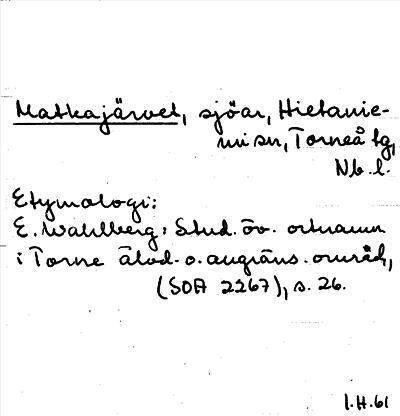 Matkajärvet, sjöar, Hietanie-
mi sn, Torneå tg,
Nb. l.
Etymologi:
E. Wahlberg: Stud. öv. ortnamn
i Torne älvd. o. angräns. område,
(SOA 2267), s. 26.
I.H. 61